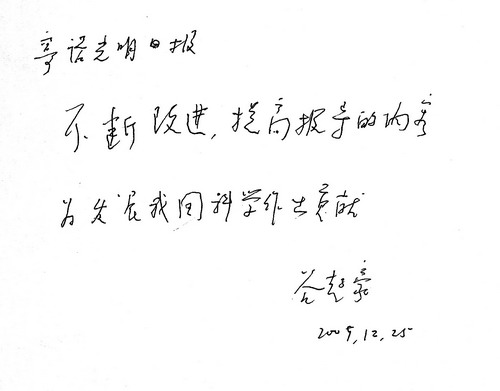 寄语光明日报
不断改进,提高报导的内容
为发展我国科学作出贡献
谷超豪
2009,12,25